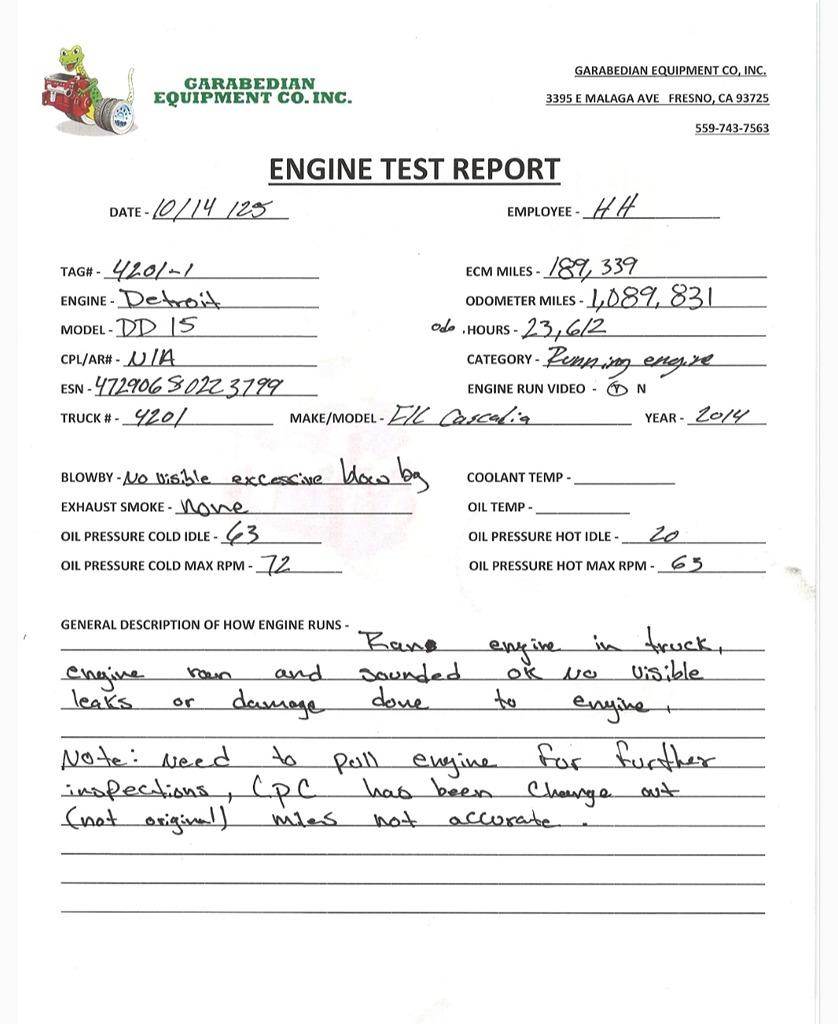 GARABEDIAN
EQUIPMENT CO. INC.
GARABEDIAN EQUIPMENT CO, INC.
3395 E MALAGA AVE FRESNO, CA 93725
559-743-7563
ENGINE TEST REPORT
DATE - 10/14/25 EMPLOYEE - HH
TAG# - 4201-1 ECM MILES - 189,339
ENGINE - Detroit ODOMETER MILES - 1,089,831
MODEL - DD 15 odo. HOURS - 23,612
CPL/AR# - N/A CATEGORY - Running engine
ESN - 472906S0223799 ENGINE RUN VIDEO - Y N
TRUCK # - 4201 MAKE/MODEL - F/L Cascadia YEAR - 2014
BLOWBY - No visible excessive blow by COOLANT TEMP -
EXHAUST SMOKE - None OIL TEMP -
OIL PRESSURE COLD IDLE - 63 OIL PRESSURE HOT IDLE - 20
OIL PRESSURE COLD MAX RPM - 72 OIL PRESSURE HOT MAX RPM - 63
GENERAL DESCRIPTION OF HOW ENGINE RUNS -
Ran engine in truck,
engine ran and sounded ok No visible
leaks or damage done to engine,
Note: Need to pull engine for further
inspections, CPC has been change out
(not original) miles not accurate.